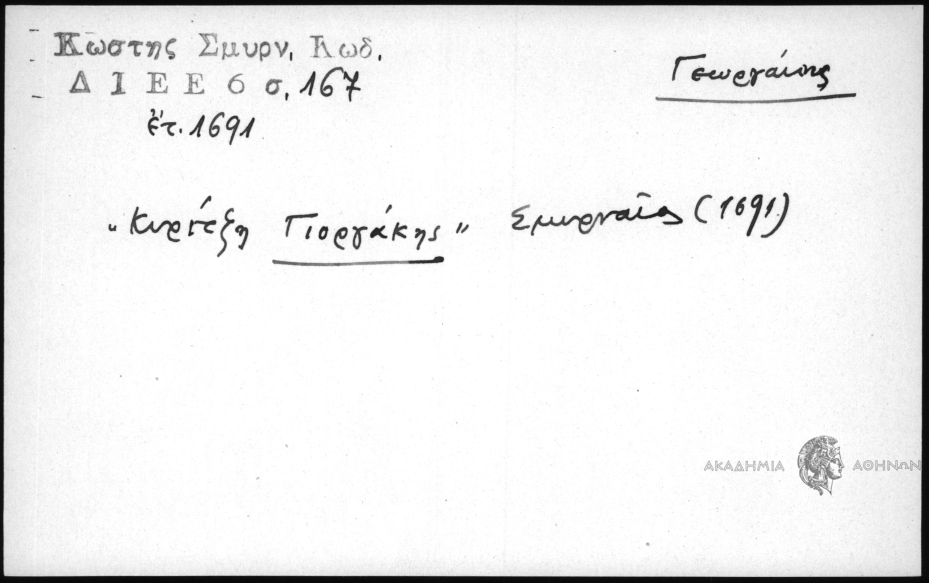 Κωστης Σμυρν. Κωδ.
Δ Ι Ε Ε 6 σ. 167
ἔτ. 1691
Γεωργάκης
"Κυρίτζη Γιοργάκης" Σμυρναῖος (1691)
ΑΚΑΔΗΜΙΑ ΑΘΗΝΩΝ